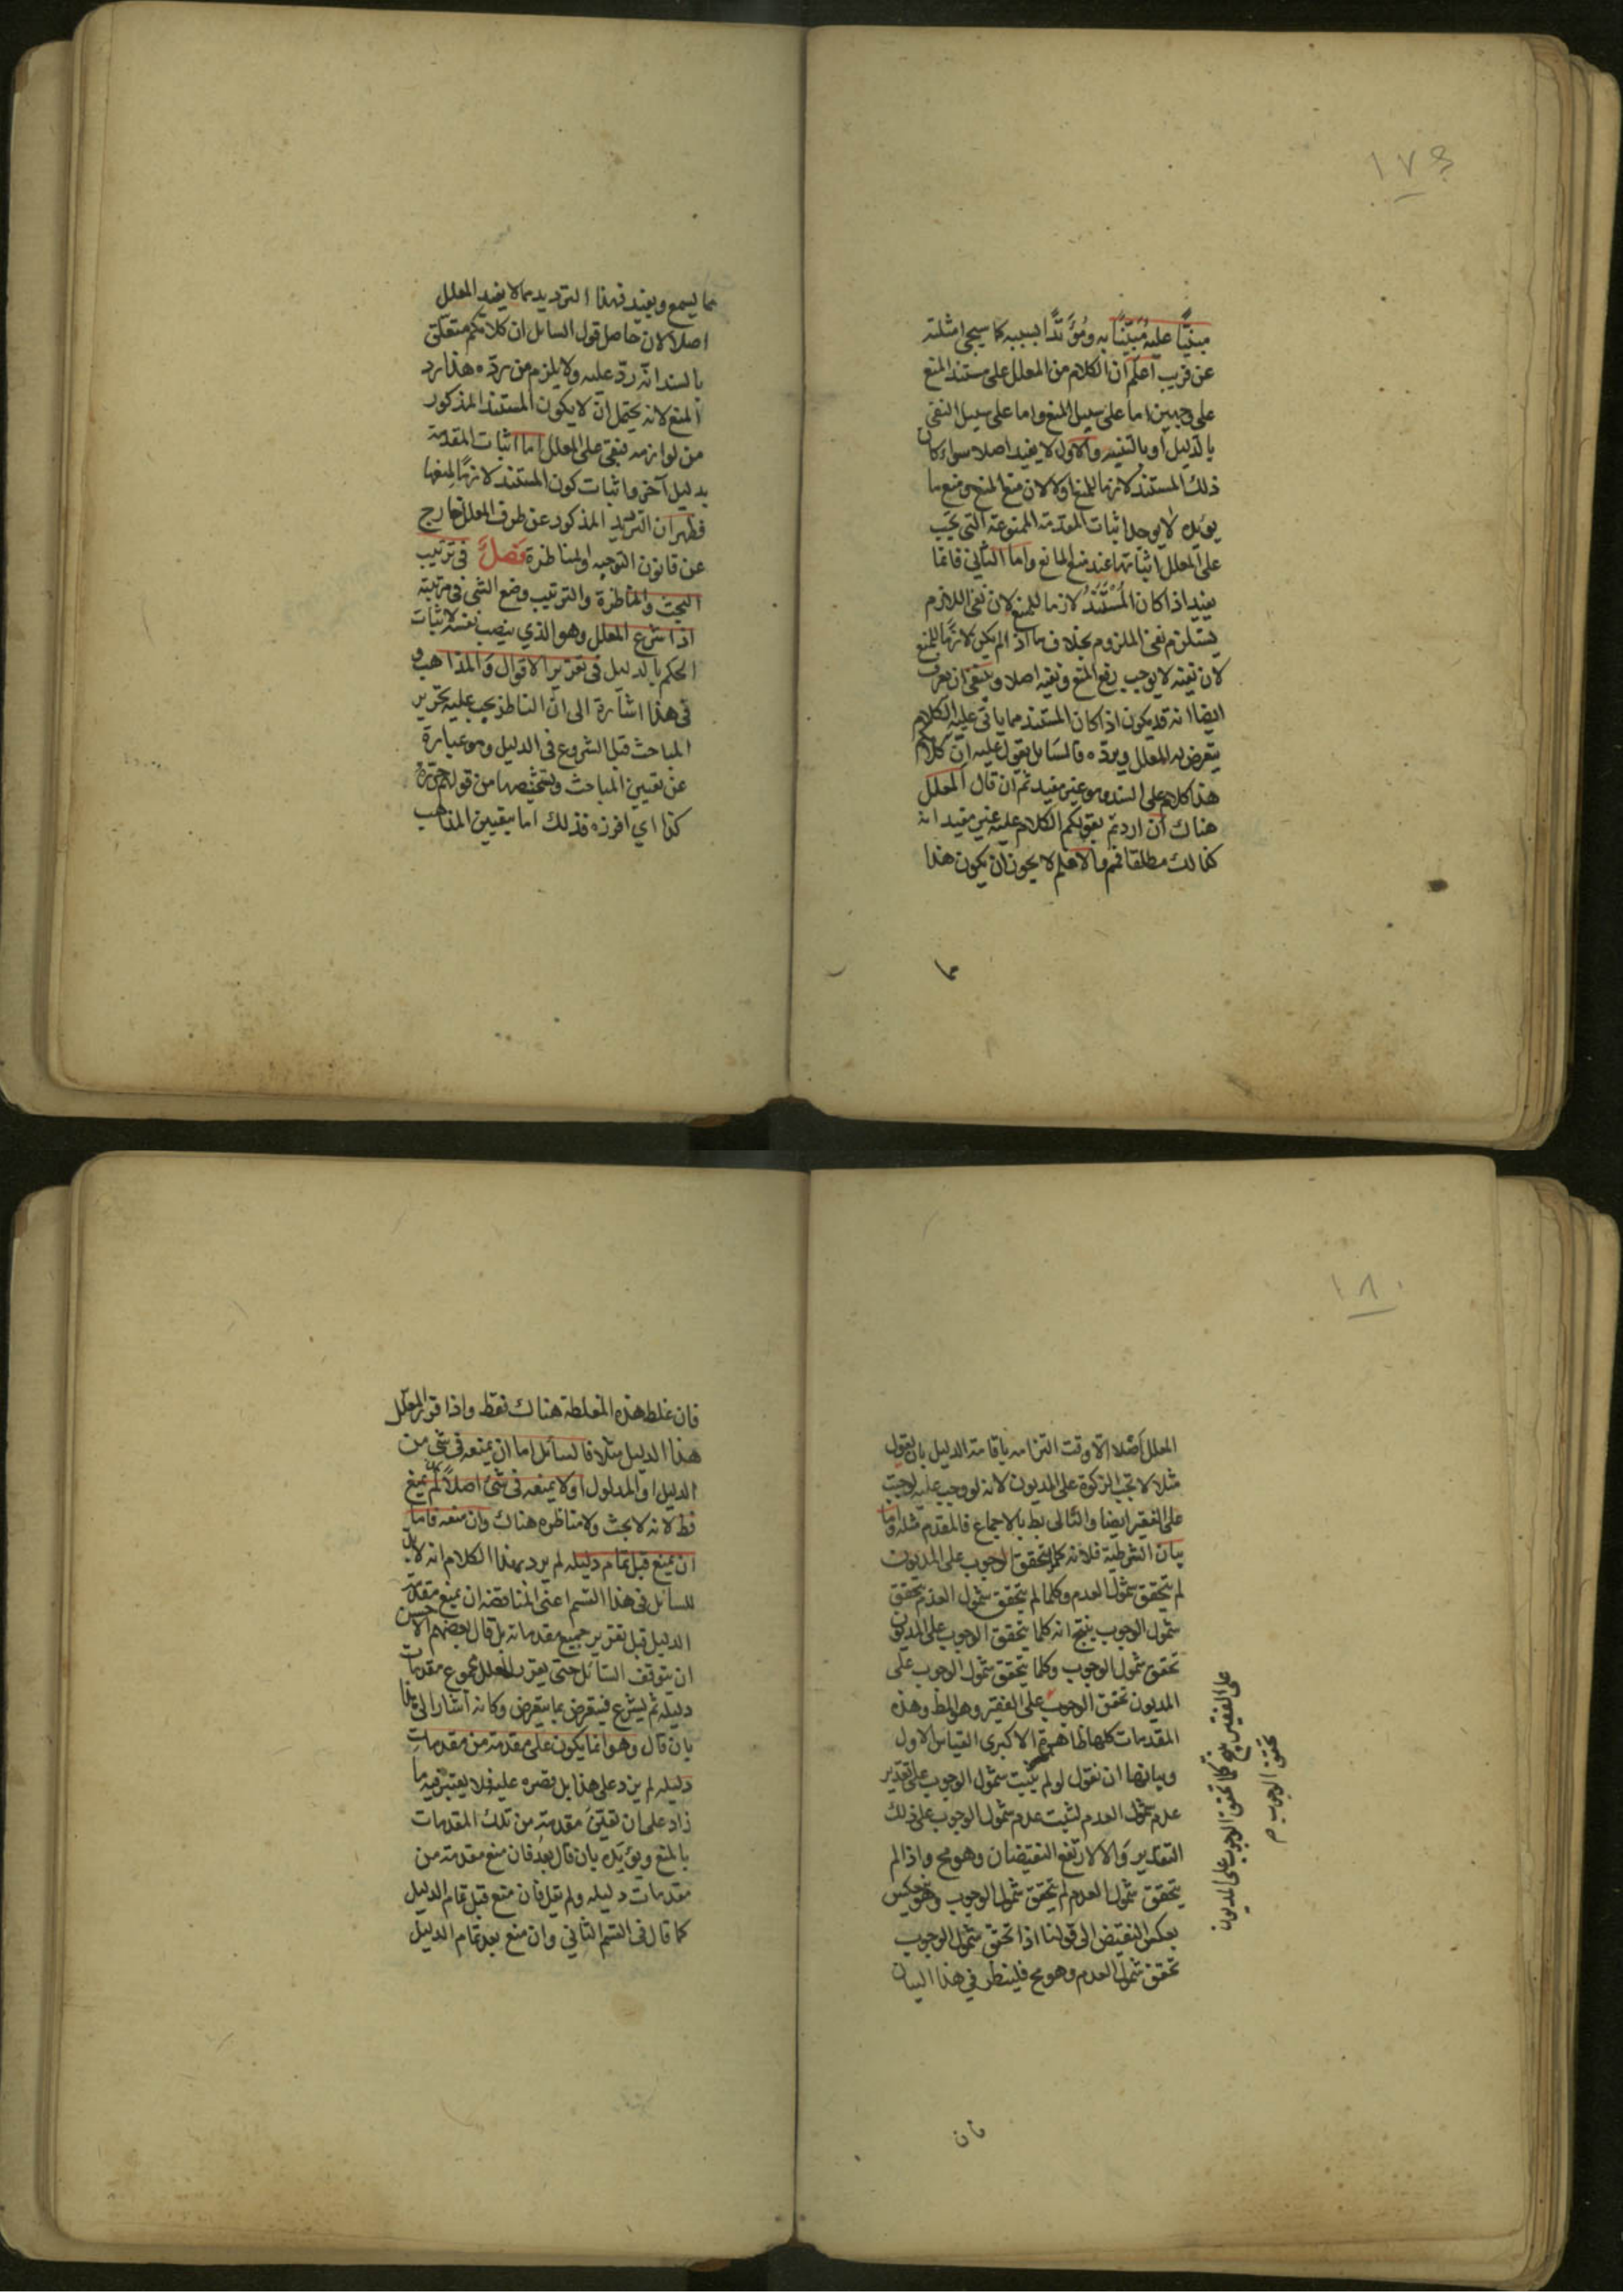 ١٧٩
مبنيًّا عليه مُبيَّنًا به ومُؤَيَّدًا بسببه كما سيجئ امثلته
عن قريب اعلم ان الكلام من المعلل على مستند المنع
على وجهين اما على سبيل المنع واما على سبيل النفى
بالدليل او بالتنبيه والاول لا يفيد اصلا سواء كان
ذلك المستند لازما للمنع اولا لان منع المنع ومنع ما
يؤيده لا يوجب اثبات المقدمة الممنوعة التى يجب
على المعلل اثباتها عند منع المانع واما الثانى فانما
يفيد اذا كان المُسْتَنَدُ لازما للمنع لان نفى اللازم
يستلزم نفى الملزوم بخلاف ما اذا لم يكن لازما للمنع
لان نفيه لا يوجب رفع المنع ونفيه اصلا وينبغى ان يعرف
ايضا انه قد يكون اذا كان المستند مما يأتى عليه الكلام
يتعرض له المعلل ويرده فالسائل يقول عليه ان كلامكم
هذا كلام على السند وهو غير مفيد ثم ان قال المعلل
هناك ان اردتم بقولكم الكلام عليه غير مفيد انه
كذلك مطلقا فم والا فلم لا يجوز ان يكون هذا
مما
مما يسمع ويفيد فهذا الترديد مما لا يفيد المعلل
اصلا لان حاصل قول السائل ان كلامكم متعلق
بالسند انه ردّ عليه ولا يلزم من ردّه هذا رد
المنع لانه يحتمل ان لا يكون المستند المذكور
من لوازمه فبقى على المعلل اما اثبات المقدمة
بدليل آخر واثبات كون المستند لازمًا لمنعها
فظهر ان الترديد المذكور عن طرف المعلل خارج
عن قانون التوجيه والمناظرة فصلٌ فى ترتيب
البحث والمناظرة والترتيب وضع الشئ فى مرتبته
اذا شرع المعلل وهو الذي ينصب نفسه لاثبات
الحكم بالدليل فى تقرير الاقوال والمذاهب و
فى هذا اشارة الى ان الناظر يجب عليه تحرير
المباحث قبل الشروع فى الدليل وهو عبارة
عن تعيين المباحث وتشخيصها من قولهم حرّره
كذا اي افرزه فذلك اما بتعيين المذاهب
١٨٠
المعلل اصلا الّا وقت التزامه باقامة الدليل بان يقول
مثلا لا تجب الزكوة على المديون لانه لو وجب عليه لوجبت
على الفقير ايضا والتالى بط بالاجماع فالمقدم مثله واما
بيان الشرطية فلانه كلما يتحقق الوجوب على المديون
لم يتحقق شمول العدم وكلما لم يتحقق شمول العدم يتحقق
شمول الوجوب ينتج انه كلما يتحقق الوجوب على المديون
تحقق شمول الوجوب وكلما يتحقق شمول الوجوب على
المديون تحقق الوجوب على الفقير وهو المط وهذه
المقدمات كلها ظاهرة الا كبرى القياس الاول
وبيانها ان نقول لو لم يثبت شمول الوجوب على تقدير
عدم شمول العدم لثبت عدم شمول الوجوب على ذلك
التقدير والا لارتفع النقيضان وهو مح واذا لم
يتحقق شمول العدم لم يتحقق شمول الوجوب وهو ينعكس
بعكس النقيض الى قولنا اذا تحقق شمول الوجوب
تحقق شمول العدم وهو مح فلينظر في هذا البيان
على الفقير ينتج كلما تحقق الوجوب على المديون
تحقق الوجوب م
فان
فان غلط هذه المغلطة هناك فقط واذا قرر المعلل
هذا الدليل مثلا فالسائل اما ان يمنعه فى شئ من
الدليل او المدلول اولا يمنعه فى شئ اصلا لم يمنع
قط لانه لا بحث ولا مناظرة هناك وان منعه فاما
ان يمنع قبل تمام دليله لم يرد بهذا الكلام انه لا بد
للسائل فى هذا القسم اعنى المناقضة ان يمنع مقدمة
الدليل قبل تقرير جميع مقدماته بل قال بعضهم الاحسن
ان يتوقف السائل حتى يقرر المعلل مجموع مقدمات
دليله ثم يشرع فيتعرض بما يتعرض وكانه اشار الى هذا
بان قال وهو انما يكون على مقدمة من مقدمات
دليله لم يزد على هذا بل قصره عليه فلا يعتبر فيه ما
زاد على ان تعيّن مقدمة من تلك المقدمات
بالمنع ويؤيده بان قال بعد فان منع مقدمة من
مقدمات دليله ولم يقل فان منع قبل تمام الدليل
كما قال فى القسم الثاني وان منع بعد تمام الدليل